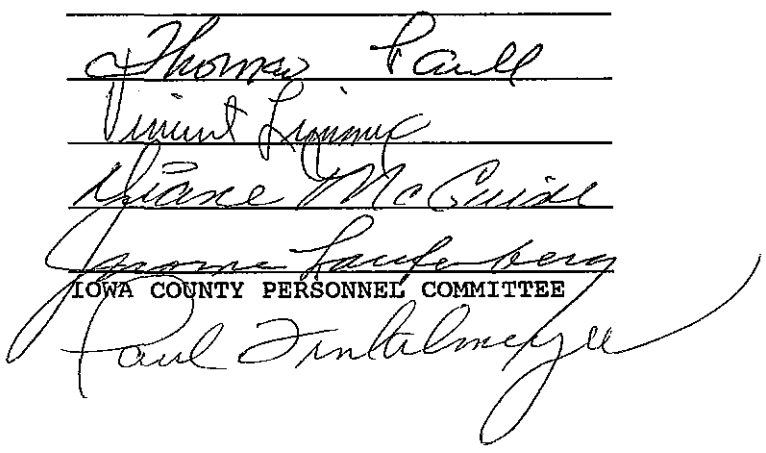 Thomas Paull
Vincent Limmex
Diane McGuire
Jerome Laufenberg
IOWA COUNTY PERSONNEL COMMITTEE
Paul